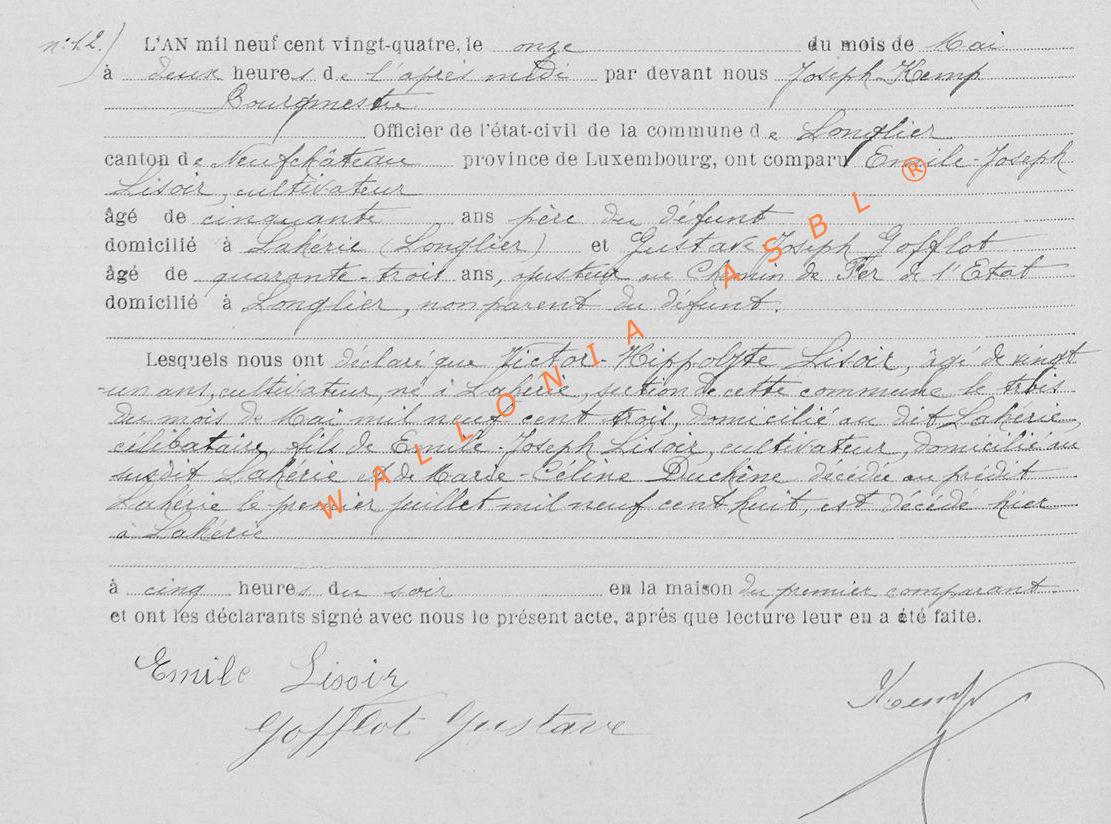 n° 12.) L'AN mil neuf cent vingt-quatre, le onze du mois de Mai
à deux heures de l'après midi par devant nous Joseph Kemp
Bourgmestre
Officier de l'état-civil de la commune de Longlier
canton de Neufchâteau province de Luxembourg, ont comparu Emile-Joseph
Lisoir, cultivateur
âgé de cinquante ans père du défunt
domicilié à Lahérie (Longlier) et Gustave Joseph Gofflot
âgé de quarante-trois ans, ajusteur au Chemin de Fer de l'Etat
domicilié à Longlier, non parent du défunt.
Lesquels nous ont déclaré que Victor-Hippolyte Lisoir, âgé de vingt
-un ans, cultivateur, né à Lahérie, section de cette commune le trois
du mois de Mai mil neuf cent trois, domicilié au dit Lahérie,
célibataire, fils de Emile-Joseph Lisoir, cultivateur, domicilié au
susdit Lahérie et de Marie-Céline Duchêne décédée au prédit
Lahérie le premier juillet mil neuf cent huit, est décédé hier
à Lahérie
à cinq heures du soir en la maison du premier comparant.
et ont les déclarants signé avec nous le présent acte, après que lecture leur en a été faite.
Emile Lisoir
Kemp
Gofflot Gustave
WALLONIA ASBL ®